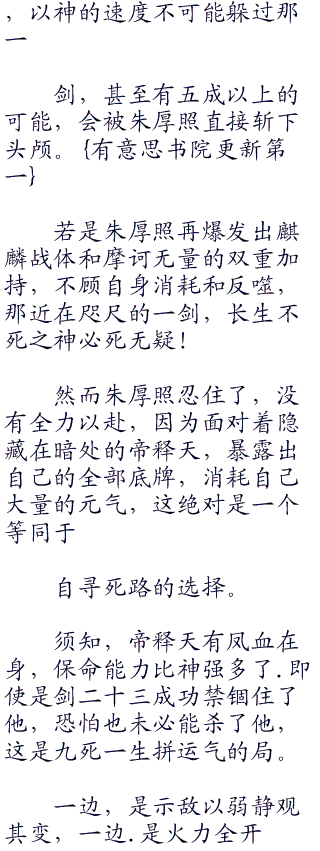 ，以神的速度不可能躲过那
一
剑，甚至有五成以上的
可能，会被朱厚照直接斩下
头颅。{有意思书院更新第
一}
若是朱厚照再爆发出麒
麟战体和摩诃无量的双重加
持，不顾自身消耗和反噬，
那近在咫尺的一剑，长生不
死之神必死无疑！
然而朱厚照忍住了，没
有全力以赴，因为面对着隐
藏在暗处的帝释天，暴露出
自己的全部底牌，消耗自己
大量的元气，这绝对是一个
等同于
自寻死路的选择。
须知，帝释天有凤血在
身，保命能力比神强多了.即
使是剑二十三成功禁锢住了
他，恐怕也未必能杀了他，
这是九死一生拼运气的局。
一边，是示敌以弱静观
其变，一边.是火力全开